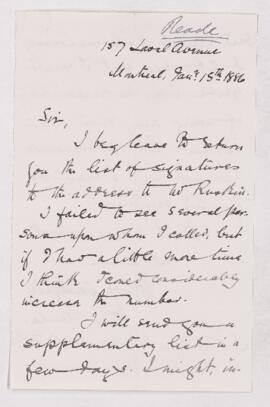 Reade
157 Laval Avenue
Montreal, Jany 15th 1886
Sir,
I beg leave to return
you the list of signatures
to the address to Mr Ruskin.
I failed to see several per-
sons upon whom I called, but
if I had a little more time
I think I could considerably
increase the number.
I will send you a
supplementary list in a
few days. I might, in-